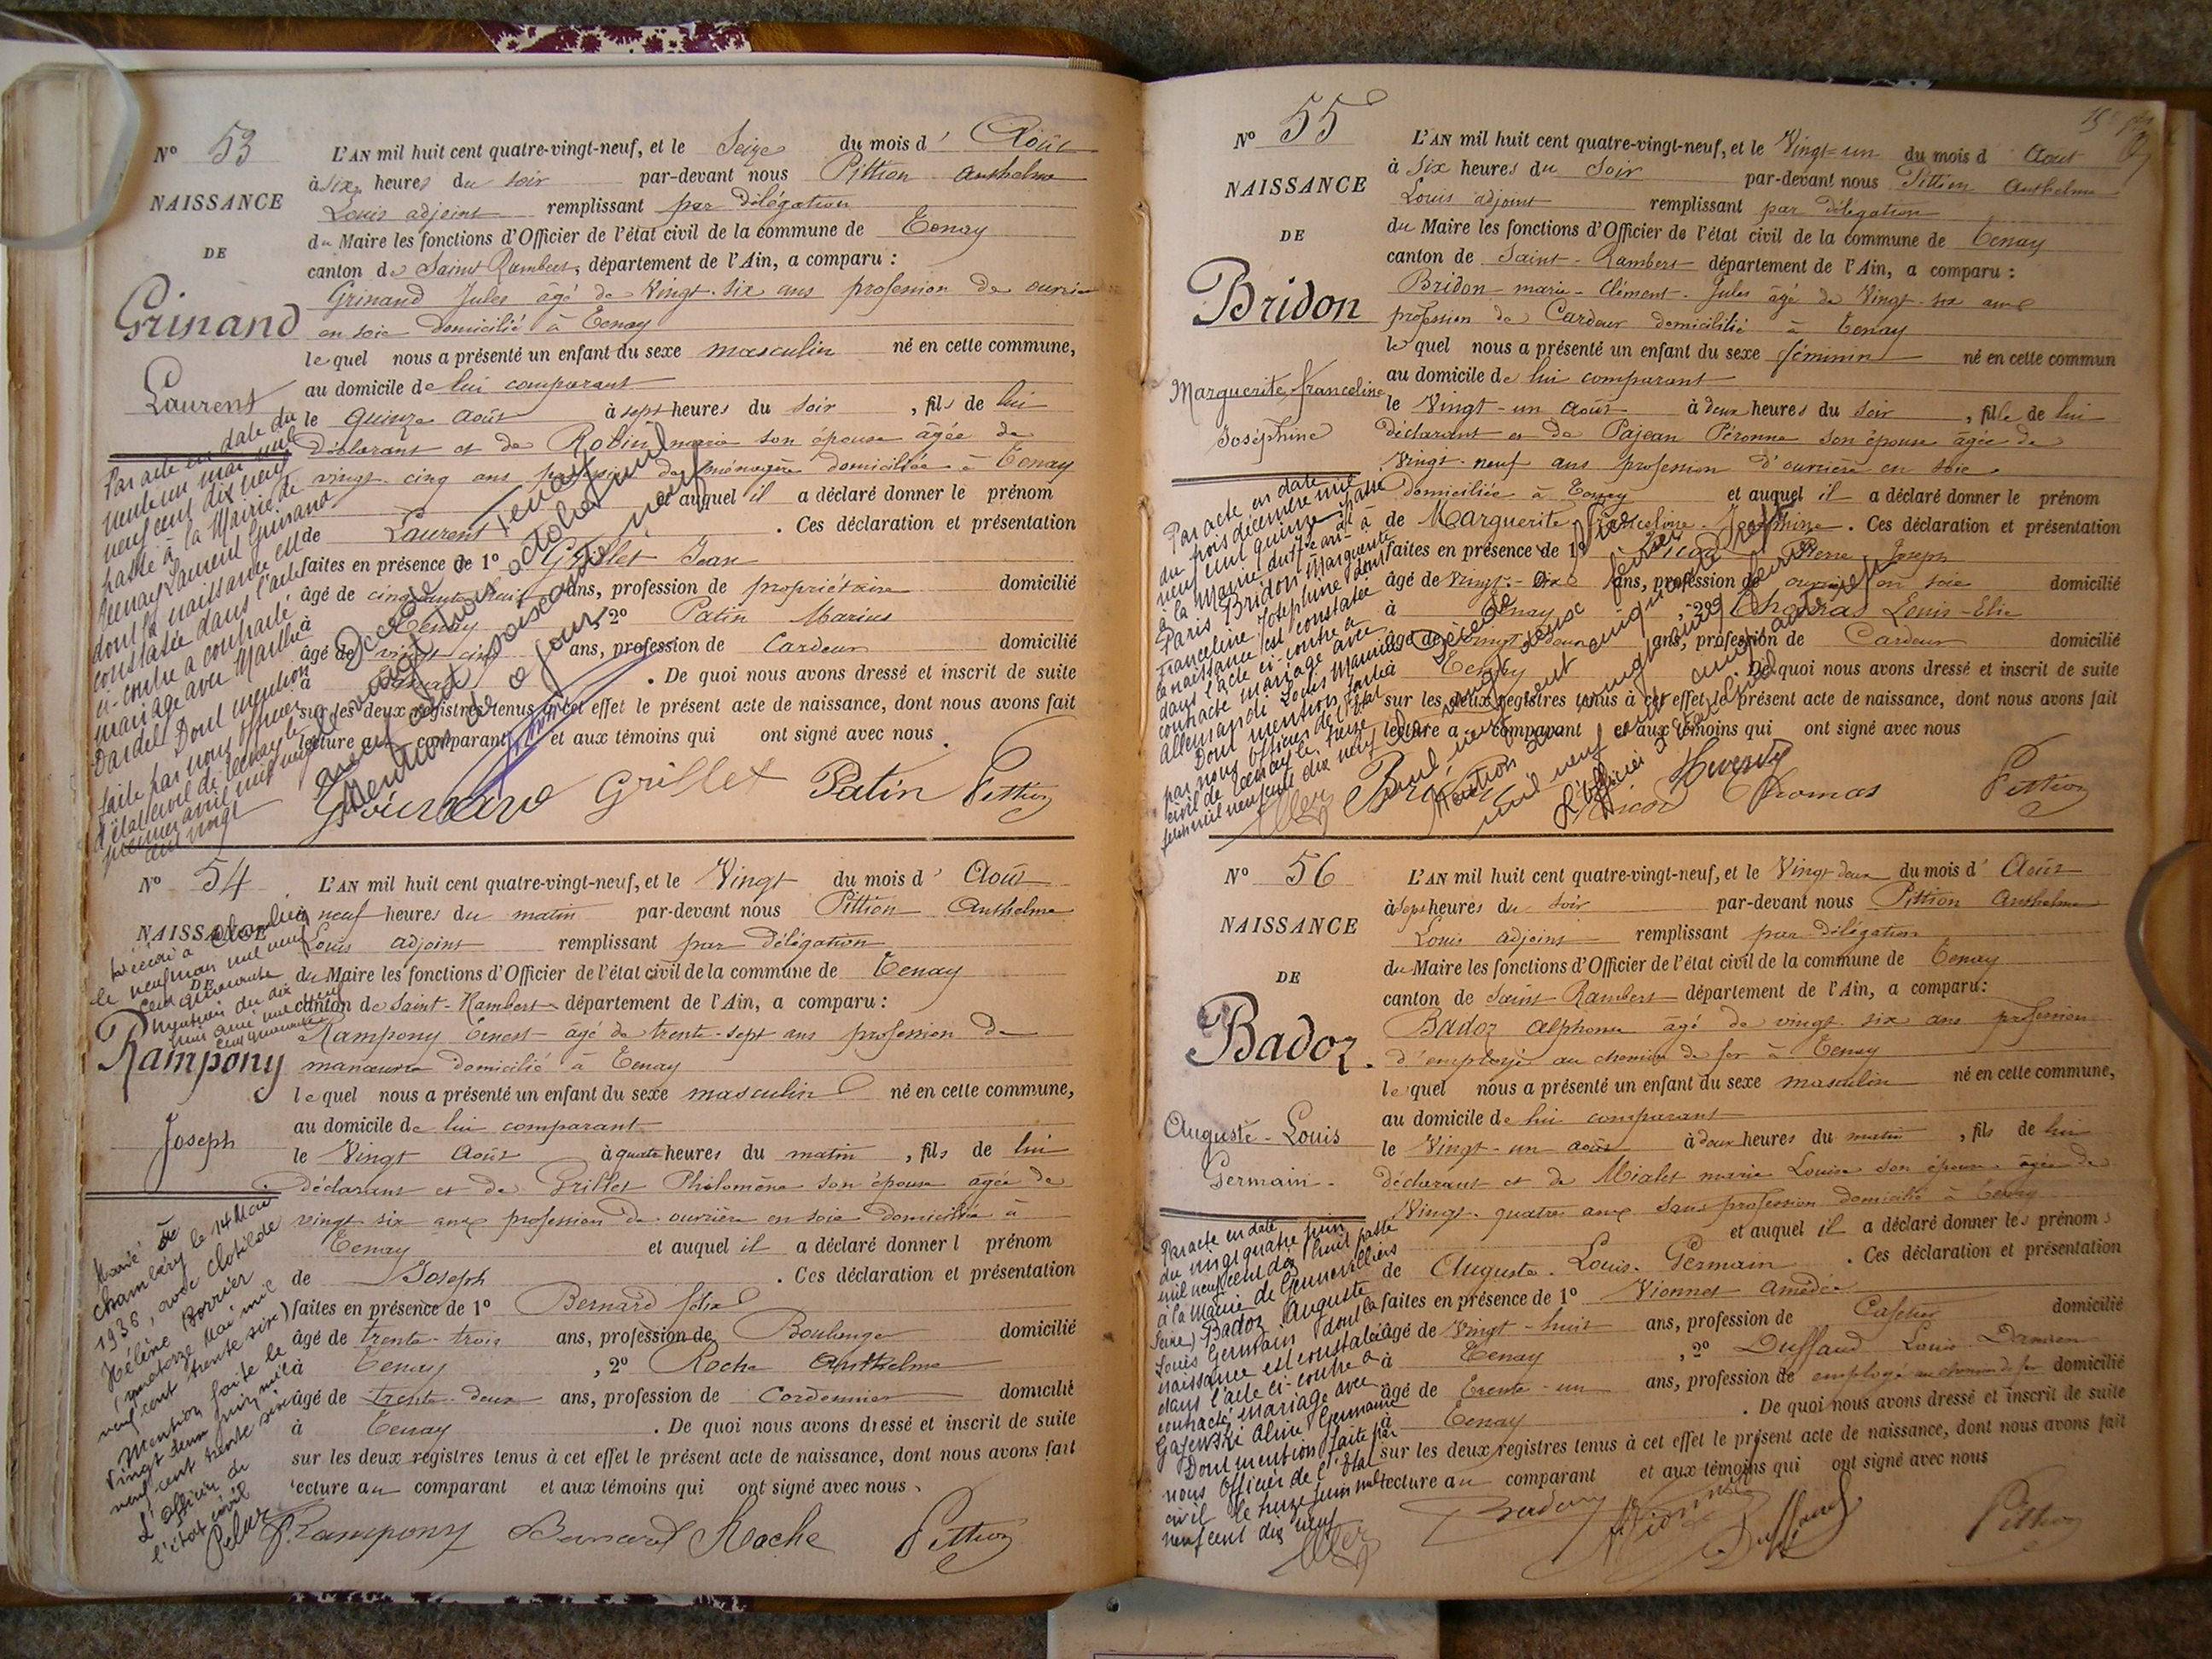 N° 53
NAISSANCE
DE
Grinand
Laurent
L'AN mil huit cent quatre-vingt-neuf, et le Seize du mois d' Août
à six heures du soir par-devant nous Pittion Anthelme
Louis adjoint remplissant par délégation
du Maire les fonctions d'Officier de l'état civil de la commune de Tenay
canton de Saint Rambert, département de l'Ain, a comparu :
Grinand Jules âgé de Vingt-six ans profession de ouvrier
en soie domicilié à Tenay
lequel nous a présenté un enfant du sexe masculin né en cette commune,
au domicile de lui comparant
le quinze août à sept heures du soir, fils de lui
déclarant et de Robin marie son épouse âgée de
vingt-cinq ans profession de ménagère domiciliée à Tenay
et auquel il a déclaré donner le prénom
de Laurent. Ces déclaration et présentation
faites en présence de 1° Grillet Jean
âgé de cinquante huit ans, profession de propriétaire domicilié
à Tenay, 2° Patin Marius
âgé de vingt cinq ans, profession de Cardeur domicilié
à Tenay. De quoi nous avons dressé et inscrit de suite
sur les deux registres tenus à cet effet le présent acte de naissance, dont nous avons fait
lecture au comparant et aux témoins qui ont signé avec nous.
Grillet Patin Pittion
Par acte en date du
trente un mai mil
neuf cent dix neuf
passé à la Mairie de
Tenay Laurent Grinand
dont la naissance est
constatée dans l'acte
ci-contre a contracté
mariage avec Marthe
Dardel Dont mention
faite par nous officier
d'état civil de Tenay le
premier avril mil neuf
cent vingt
Décédé à Tenay
le vingt trois octobre mil
neuf cent soixante neuf
Mention ce jour
N° 54
NAISSANCE
DE
Rampony
Joseph
Décédé à Chambéry
le neuf mars mil neuf
cent quarante
Mention du dix
L'AN mil huit cent quatre-vingt-neuf, et le Vingt du mois d' Août
à neuf heures du matin par-devant nous Pittion Anthelme
Louis adjoint remplissant par délégation
du Maire les fonctions d'Officier de l'état civil de la commune de Tenay
canton de Saint-Rambert département de l'Ain, a comparu :
Rampony Ernest âgé de trente-sept ans profession de
manœuvre domicilié à Tenay
lequel nous a présenté un enfant du sexe masculin né en cette commune,
au domicile de lui comparant
le Vingt Août à quatre heures du matin, fils de lui
déclarant et de Grillet Philomène son épouse âgée de
vingt six ans profession de ouvrière en soie domiciliée à
Tenay et auquel il a déclaré donner l prénom
de Joseph. Ces déclaration et présentation
faites en présence de 1° Bernard félix
âgé de trente-trois ans, profession de Boulanger domicilié
à Tenay, 2° Roche Anthelme
âgé de trente-deux ans, profession de Cordonnier domicilié
à Tenay. De quoi nous avons dressé et inscrit de suite
sur les deux registres tenus à cet effet le présent acte de naissance, dont nous avons fait
lecture au comparant et aux témoins qui ont signé avec nous.
Rampony Bernard Roche Pittion
Marié à
Chambéry le 14 Mai
1936, avec Clotilde
Hélène Borrier
(quatorze Mai mil
neuf cent trente six)
Mention faite le
Vingt deux juin mil
neuf cent trente six
L'officier de
l'état civil
N° 55
NAISSANCE
DE
Bridon
Marguerite franceline
Joséphine
L'AN mil huit cent quatre-vingt-neuf, et le Vingt-un du mois d Aout
à Six heures du Soir par-devant nous Pittion Anthelme
Louis adjoint remplissant par délégation
du Maire les fonctions d'Officier de l'état civil de la commune de Tenay
canton de Saint-Rambert département de l'Ain, a comparu :
Bridon-marie-Clément-Jules âgé de Vingt-six ans
profession de Cardeur domicilié à Tenay
lequel nous a présenté un enfant du sexe féminin né en cette commun
au domicile de lui comparant
le Vingt-un août à deux heures du soir, fille de lui
déclarant et de Pajean Péronne son épouse âgée de
Vingt-neuf ans profession d'ouvrière en soie
domiciliée à Tenay et auquel il a déclaré donner le prénom
de Marguerite franceline-Joséphine. Ces déclaration et présentation
faites en présence de 1° Picod Pierre Joseph
âgé de Vingt-Six ans, profession de ouvrier en soie domicilié
à Tenay, 2° Thomas Louis-Elie
âgé de Vingt-deux ans, profession de Cardeur domicilié
à Tenay. De quoi nous avons dressé et inscrit de suite
sur les deux registres tenus à cet effet le présent acte de naissance, dont nous avons fait
lecture au comparant et aux témoins qui ont signé avec nous
Bridon Picod Thomas Pittion
Par acte en date
du trois décembre mil
neuf cent quinze passé
à la Mairie du 17e arrt à
Paris Bridon Marguerite
Franceline Joséphine dont
la naissance est constatée
dans l'acte ci-contre a
contracté mariage avec
Louis Maurice
Dont mention faite
par nous officier de l'état
civil de Tenay le treize
juin mil neuf cent dix neuf
N° 56
NAISSANCE
DE
Badoz.
Auguste-Louis
Germain-
L'AN mil huit cent quatre-vingt-neuf, et le Vingt deux du mois d' Août
à Sept heures du soir par-devant nous Pittion Anthelme
Louis adjoint remplissant par délégation
du Maire les fonctions d'Officier de l'état civil de la commune de Tenay
canton de Saint Rambert département de l'Ain, a comparu :
Badoz Alphonse âgé de vingt-six ans profession
d'employé au chemin de fer à Tenay
lequel nous a présenté un enfant du sexe masculin né en cette commune,
au domicile de lui comparant
le Vingt-un août à deux heures du matin, fils de lui
déclarant et de Mialet marie Louise son épouse âgée de
Vingt-quatre ans sans profession domicilié à Tenay
et auquel il a déclaré donner les prénoms
de Auguste-Louis-Germain. Ces déclaration et présentation
faites en présence de 1° Vionnet Amédée
âgé de Vingt-huit ans, profession de Cafetier domicilié
à Tenay, 2° Duffaud Louis Damien
âgé de Trente-un ans, profession de employé au chemin de fer domicilié
à Tenay. De quoi nous avons dressé et inscrit de suite
sur les deux registres tenus à cet effet le présent acte de naissance, dont nous avons fait
lecture au comparant et aux témoins qui ont signé avec nous
Badoz Vionnet Duffaud Pittion
Par acte en date
du vingt quatre juin
mil neuf cent dix huit passé
à la Mairie de Gennevilliers
(Seine) Badoz Auguste
Louis Germain dont la
naissance est constatée
dans l'acte ci-contre a
contracté mariage avec
Gajewski Aline Germaine
Dont mention faite par
nous Officier de l'état
civil le treize juin mil
neuf cent dix neuf